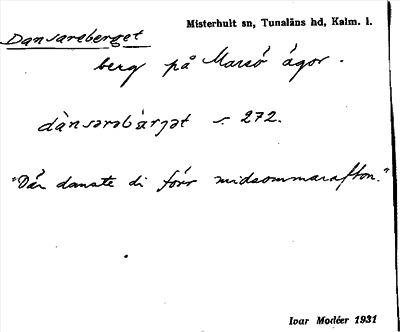 Misterhult sn, Tunaläns hd, Kalm. l.
Dansareberget
berg på Marsö ägor.
dànsarəbàrjət s. 272.
"Där danste di förr midsommarafton."
Ivar Modéer 1931